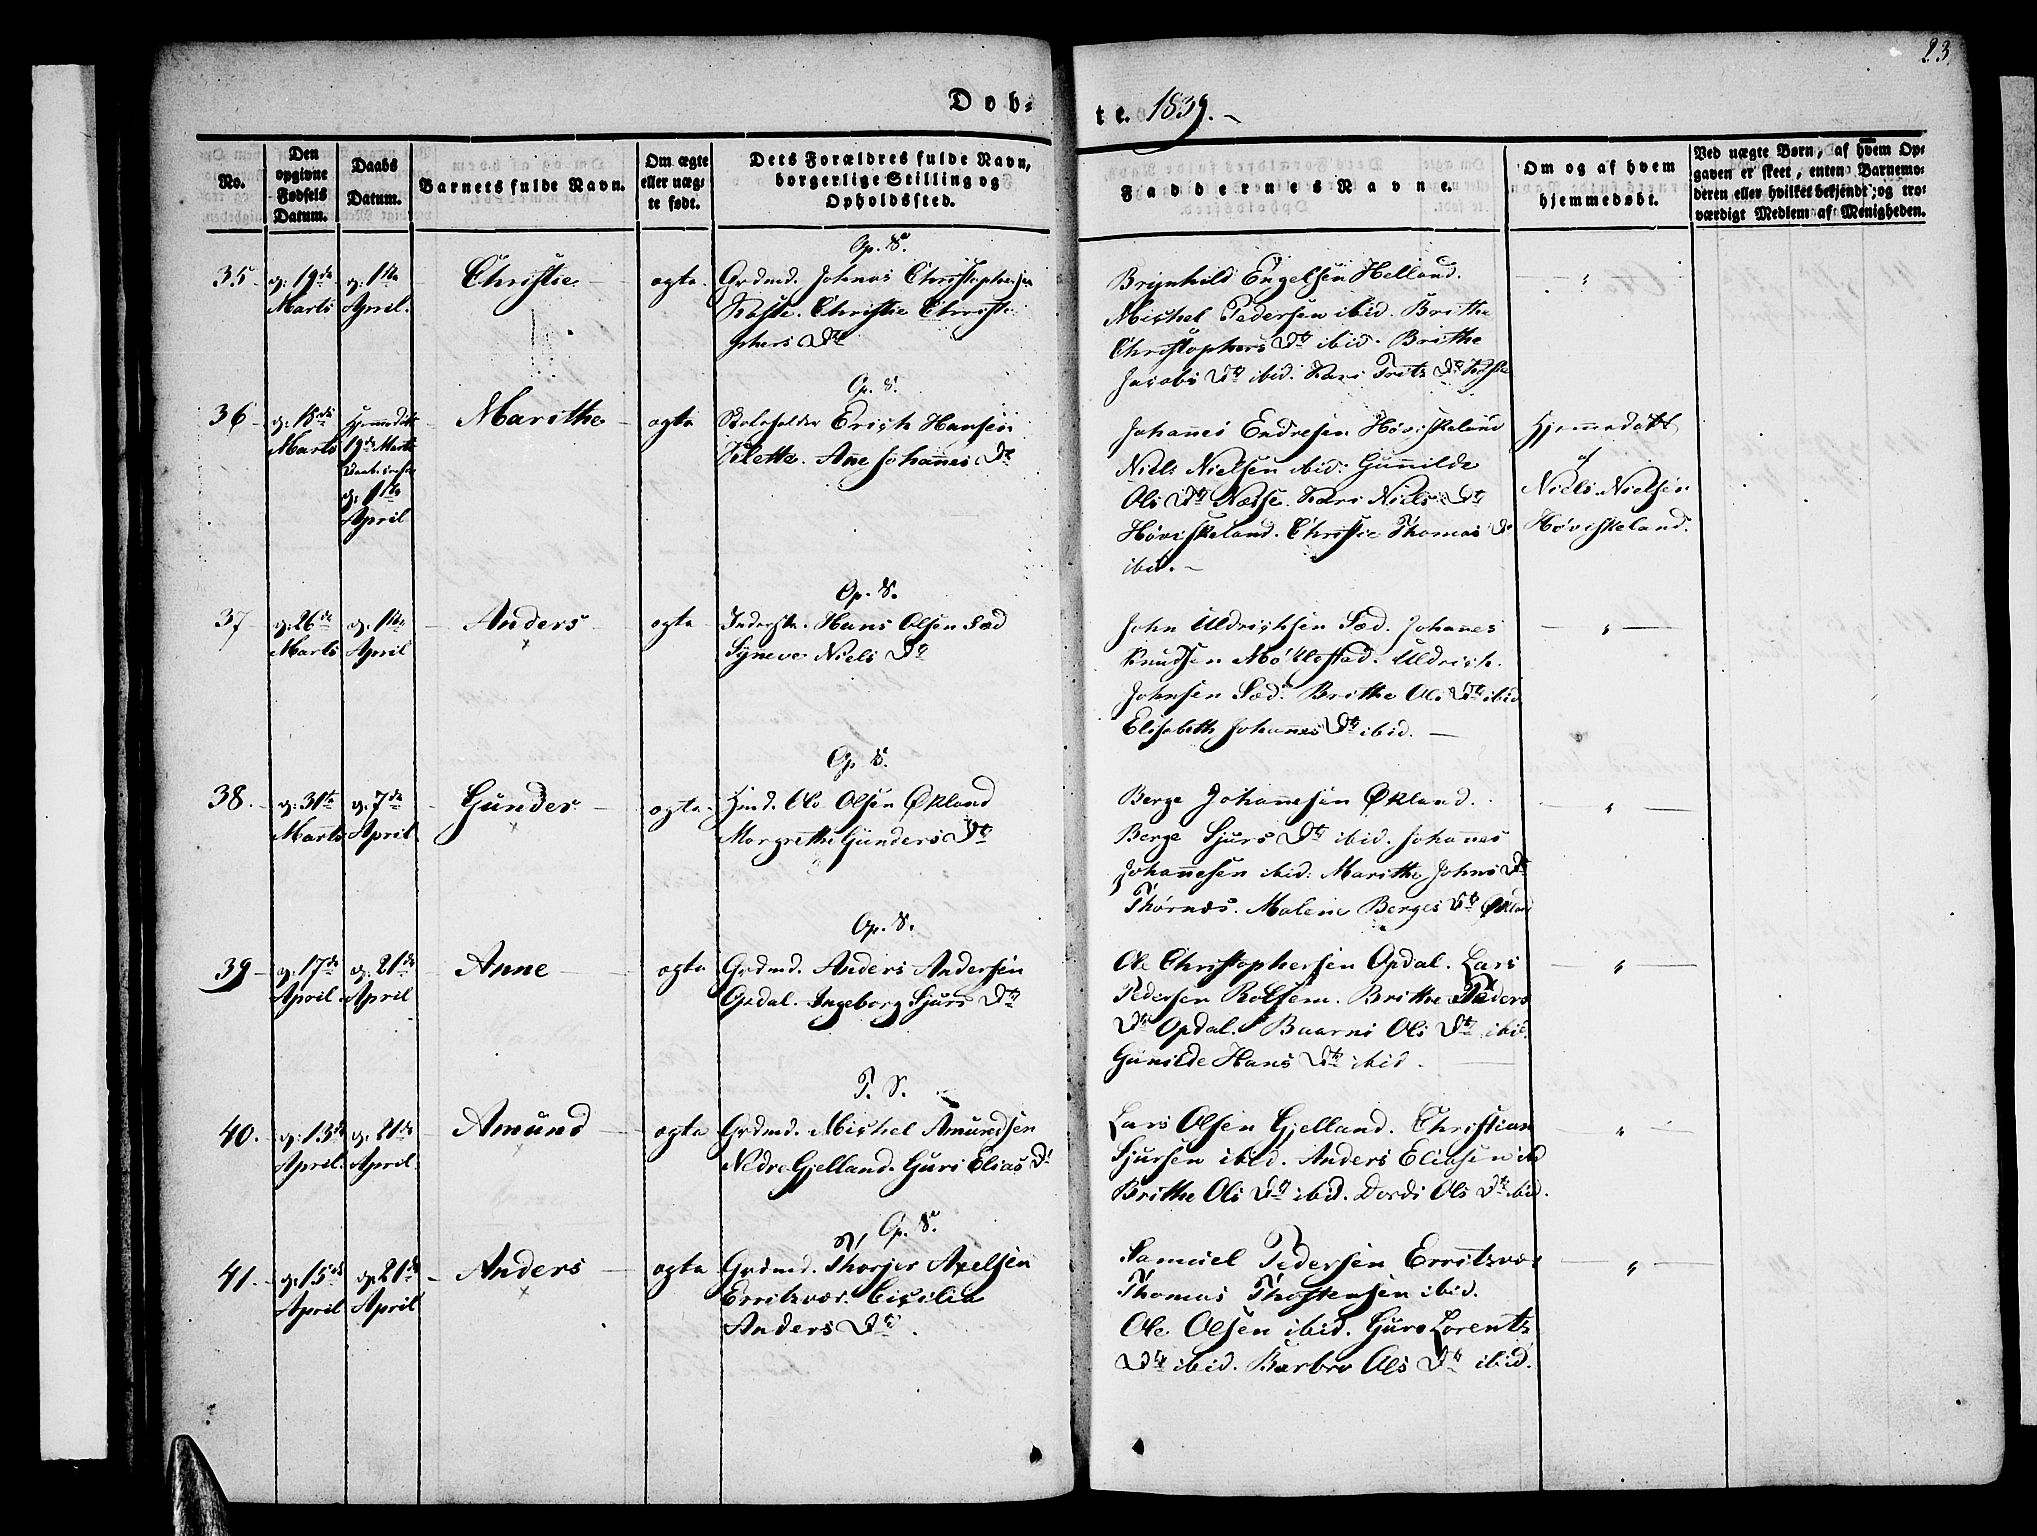 23.
Døb-
te. 1839.
No.
Den opgivne Fødsels Datum.
Daabs Datum.
Barnets fulde Navn.
Om ægte eller uægte født.
Dets Forældres fulde Navn, borgerlige Stilling og Opholdssted.
Faddernes Navne.
Om og af hvem hjemmedøbt.
Ved uægte Børn, af hvem Opgaven er skeet, enten Barnemoderen eller hvilket bekjendt og troværdigt Medlem af Menigheden.
Op. S.
35
d: 19de Marts
d: 1ste April.
Christie
ægte.
Grdmd. Johnas Christophersen
Christie Christophers Dtr
Brynhild Engelsen Helland.
Michel Pedersen ibid. Brithe
Christophers Dtr ibid. Brithe
Jacobs Dtr ibid. Kari
Op. S.
36
d: 18de Marts
Hjemmedøbt 19de Marts
d: 1ste April
Marithe
ægte
Erich Hansen
Ane Johannes Dtr
Johannes Endresen Høviskeland
Niels Nielsen ibid. Gunnilde
Ols Dtr Næsse. Kari Niels Dtr
Høviskeland. Christie Thomas Dtr
ibid.
Hjemmedøbt
af
Niels Nielsen
Høviskeland.
Op. S.
37
d: 26de Marts
d: 1ste April
Anders
ægte
Inderste. Hans Olsen Sæd
Syneve Niels Dtr
John Uldrichsen Sæd. Johanes
Knudsen Møklestad. Uldrich
Johnsen Sæd. Brithe Ols Dtr ibid
Elisabeth Johannes Dtr ibid.
Op. S.
38.
d: 31te Marts
d: 7de April
Gunder
ægte
Hmd. Ole Olsen Økland
Margrethe Gunders Dtr
Berge Johannesen Økland.
Berge Sjurs Dtr ibid. Johannes
Johannesen ibid: Marithe Johns Dtr
Thornæs. Malene Berges Dtr Økland
Op. S.
39
d: 17de April
d: 21de April
Anne
ægte
Grdmd. Anders Andersen
Opdal. Ingeborg Sjurs Dtr
Ole Christophersen Opdal. Lars
Pedersen Rolsem. Brithe Peders
Dtr Opdal. Baarni Ols Dtr ibid.
Gunilde Hans Dtr ibid.
T. S.
40.
d: 13de April.
d: 21de April
Amund
ægte
Grdmd. Michel Amundsen
Nedre Gjelland. Guri Elias Dtr
Lars Olsen Gjelland. Christian
Sjursen ibid. Anders Eliasen ibid
Brithe Ols Dtr ibid. Dordi Ols Dtr ibid.
Op. S.
41.
d: 15de April
d: 21de April
Anders
ægte
Grdmd. Thorjer Axelsen
Erritsvær. Cicilia
Anders Dtr.
Samuel Pedersen Erritsvær
Thomas Thostensen ibid.
Ole Olsen ibid. Guro Lorents
Dtr ibid. Barbro Ols Dtr ibid.